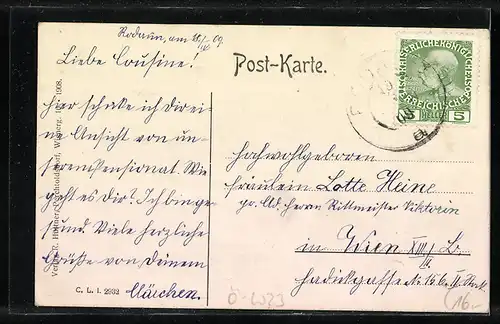 Rodaun, am
Liebe Cousine!
hier schicke ich dir eine
Ansicht von unserem
Pensionat. Wie
geht es Dir? Ich bin gesund.
Viele herzliche
Grüße von Deinem
Klärchen.
C. L. I. 2932
1908.
Post-Karte.
KAISERLICHE KÖNIGLICHE
ÖSTERREICHISCHE
HELLER
5
Hochwohlgeboren
Fräulein Lotte Heine
pr. Ad. Herrn Rittmeister Viktorin
in Wien XIII/
Hadikgasse 15
Ö-2023
16.-